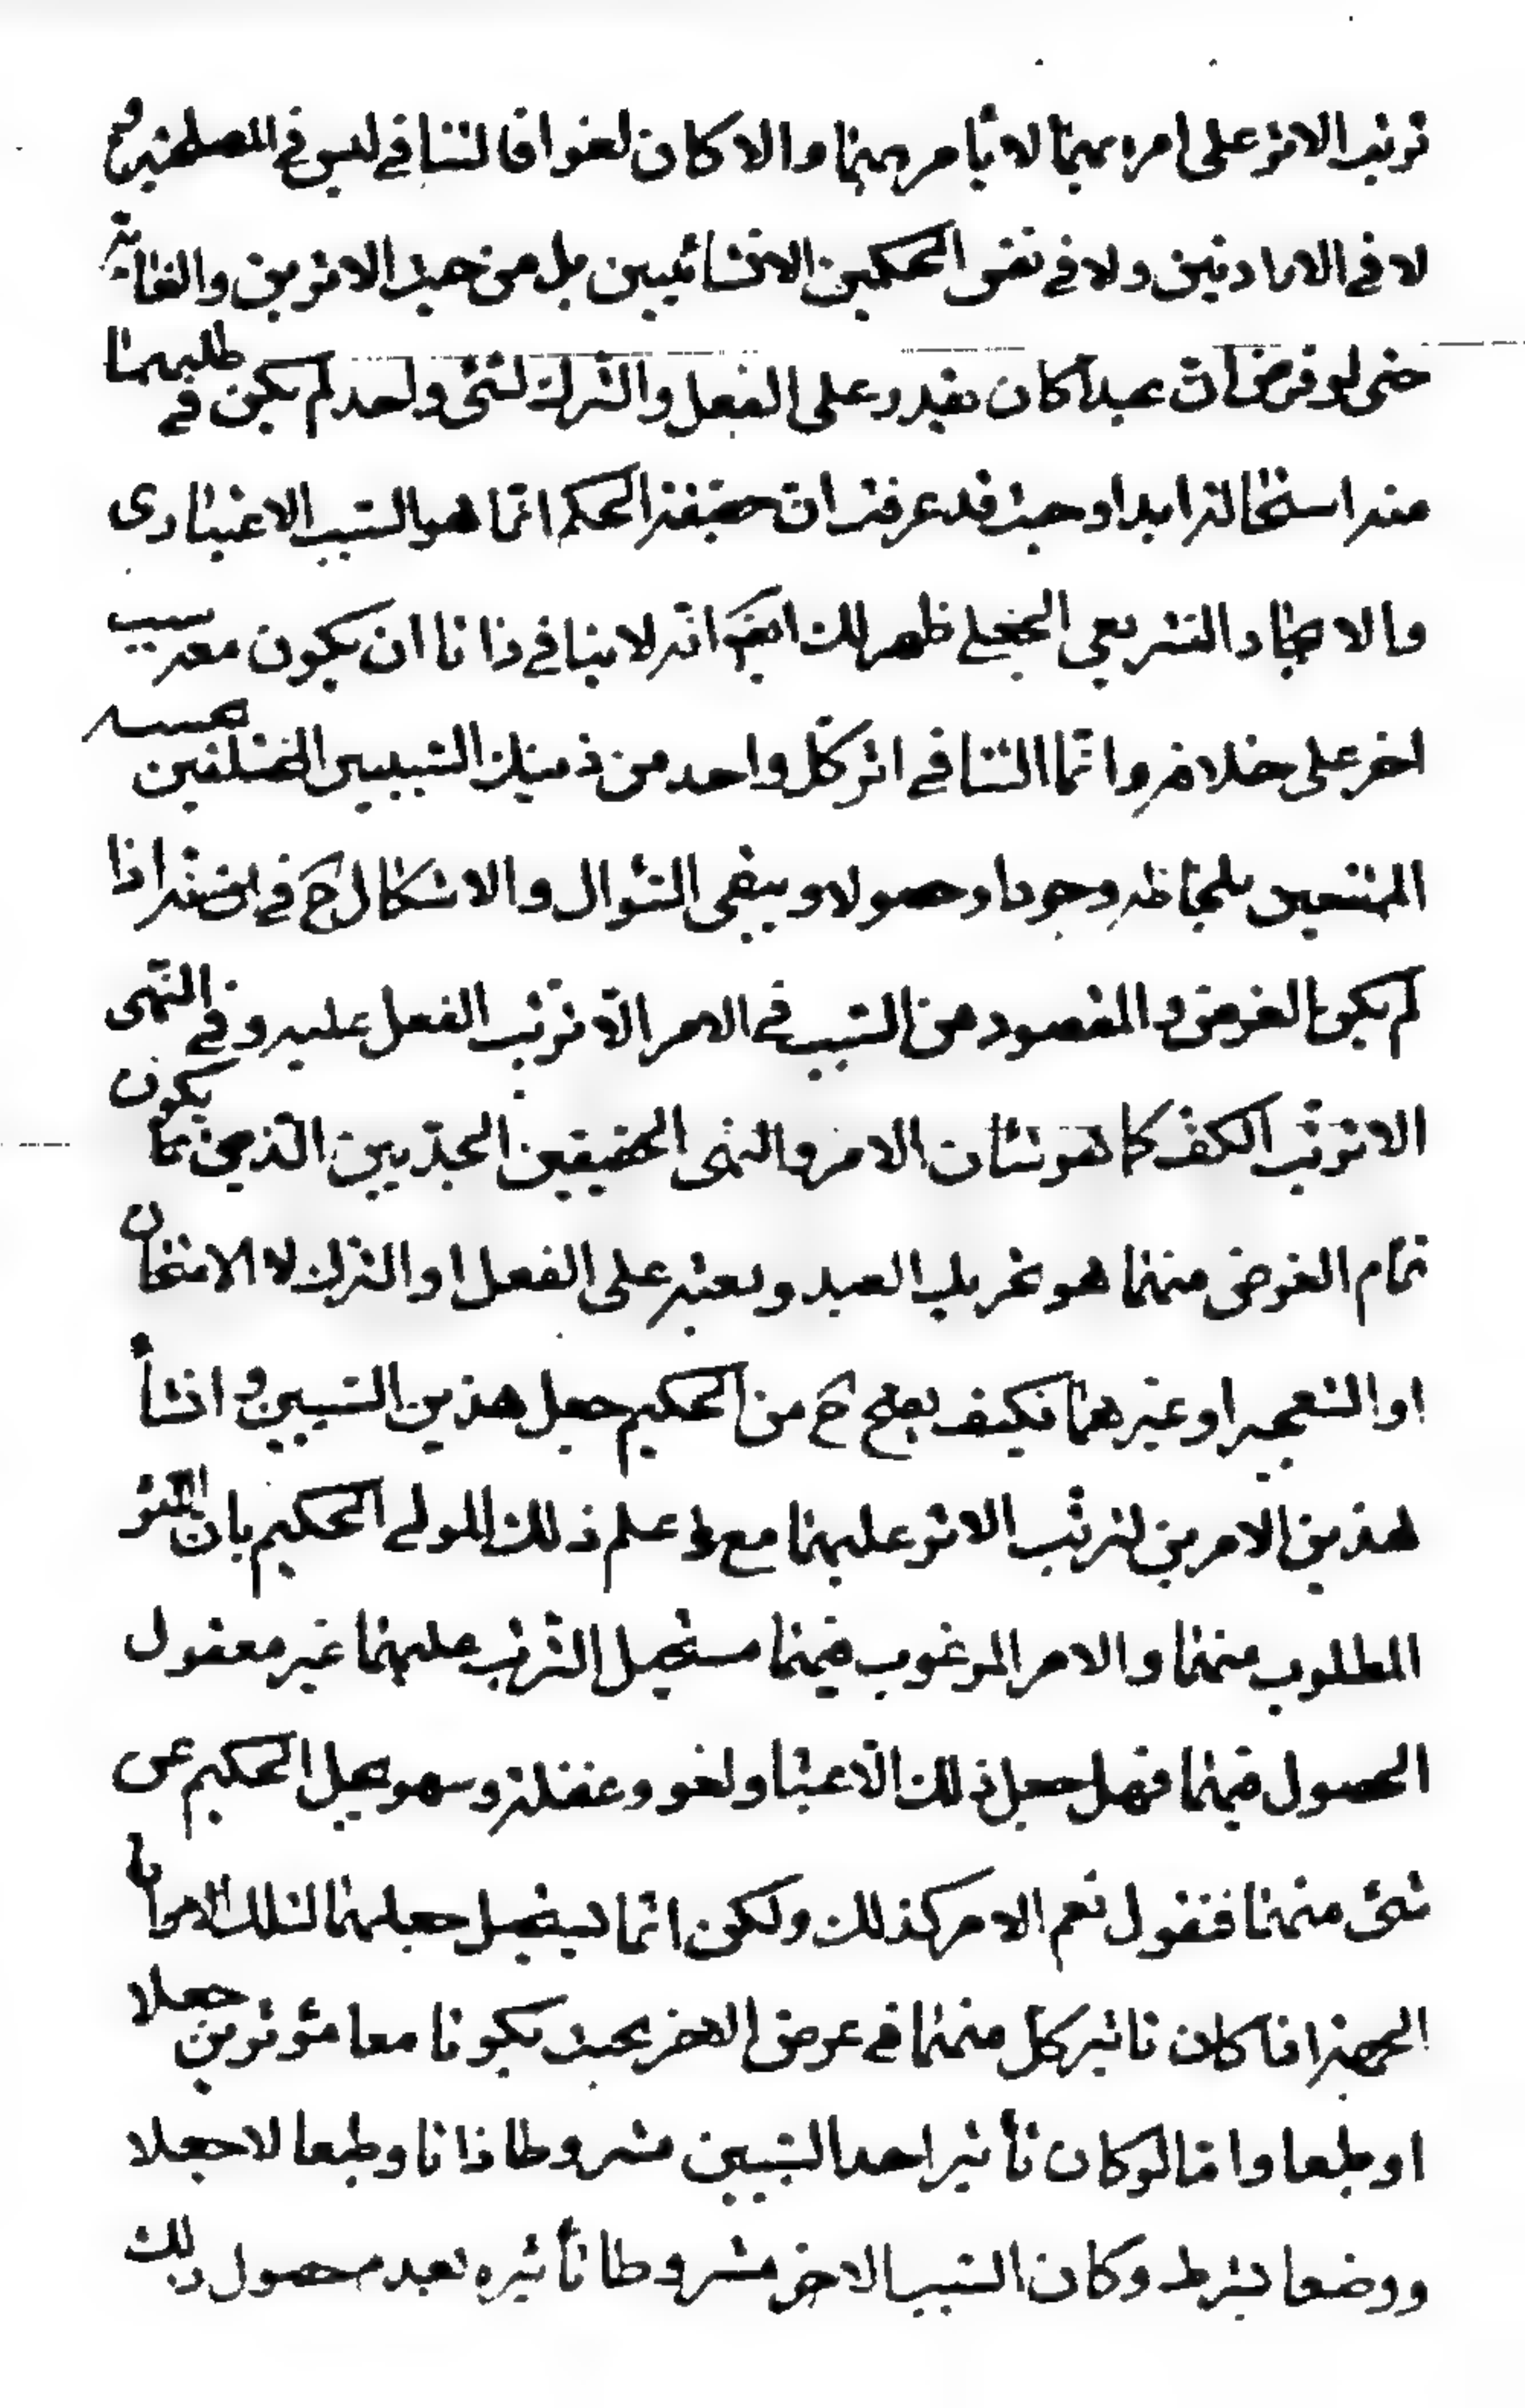 ترتب الاثر على امره بهما لا يامر بهما والا كان لغوا فالتنافي ليس في المصلحتين و
لا في الارادتين ولا في نفس الحكمين الانشائيين بل من حيث الاثرين والغاية
حتى لو فرض ان عبدا كان يقدر على الفعل والترك لشئ واحد لم يكن في طلبهما
منه استحالة ابدا وحيث قد عرفت ان حقيقة الحكم انما هو السبب الاعتبارى
والايجاد التشريعي الجعلي ظهر لك ايضا انه لا ينافي ذاتا ان يكون معه سبب
اخر على خلافه وانما التنافي اثر كل واحد من ذينك السببين المختلفين
الممتنعين بلحاظه وجودا وحصولا ويبقى السؤال والاشكال ح في انه اذا
لم يكن الغرض والمقصود من السبب في الامر الا ترتب الفعل عليه وفي النهى
الا ترتب الكف كما هو شان الامر والنهى الحقيقين الجديين الذين يكون
تمام الغرض منهما هو تحريك العبد وبعثه على الفعل او الترك لا الامتحان
او التعجيز او غيرهما فكيف يصح ح من الحكيم جعل هذين السببين وانشأ
هذين الامرين لترتب الاثر عليهما مع علم ذلك المولى الحكيم بان الاثر
المطلوب منهما والامر المرغوب فيهما مستحيل الترتب عليهما غير معقول
الحصول فيهما فهل جعل ذلك الاعتبار لغو وغفلة وسهو يجل الحكيم عن
شئ منهما فنقول نعم الامر كذلك ولكن انما يستحيل جعلهما لتلك الامران
الجهة اذا كان تاثير كل منهما في عرض الاخر بحيث يكونا معا مؤثرين جعلا
او طبعا واما لو كان تأثير احد السببين مشروطا ذاتا وطبعا لا جعلا
ووضعا بشرط وكان السبب الاخر مشروطا تأثيره بعدم حصول ذلك